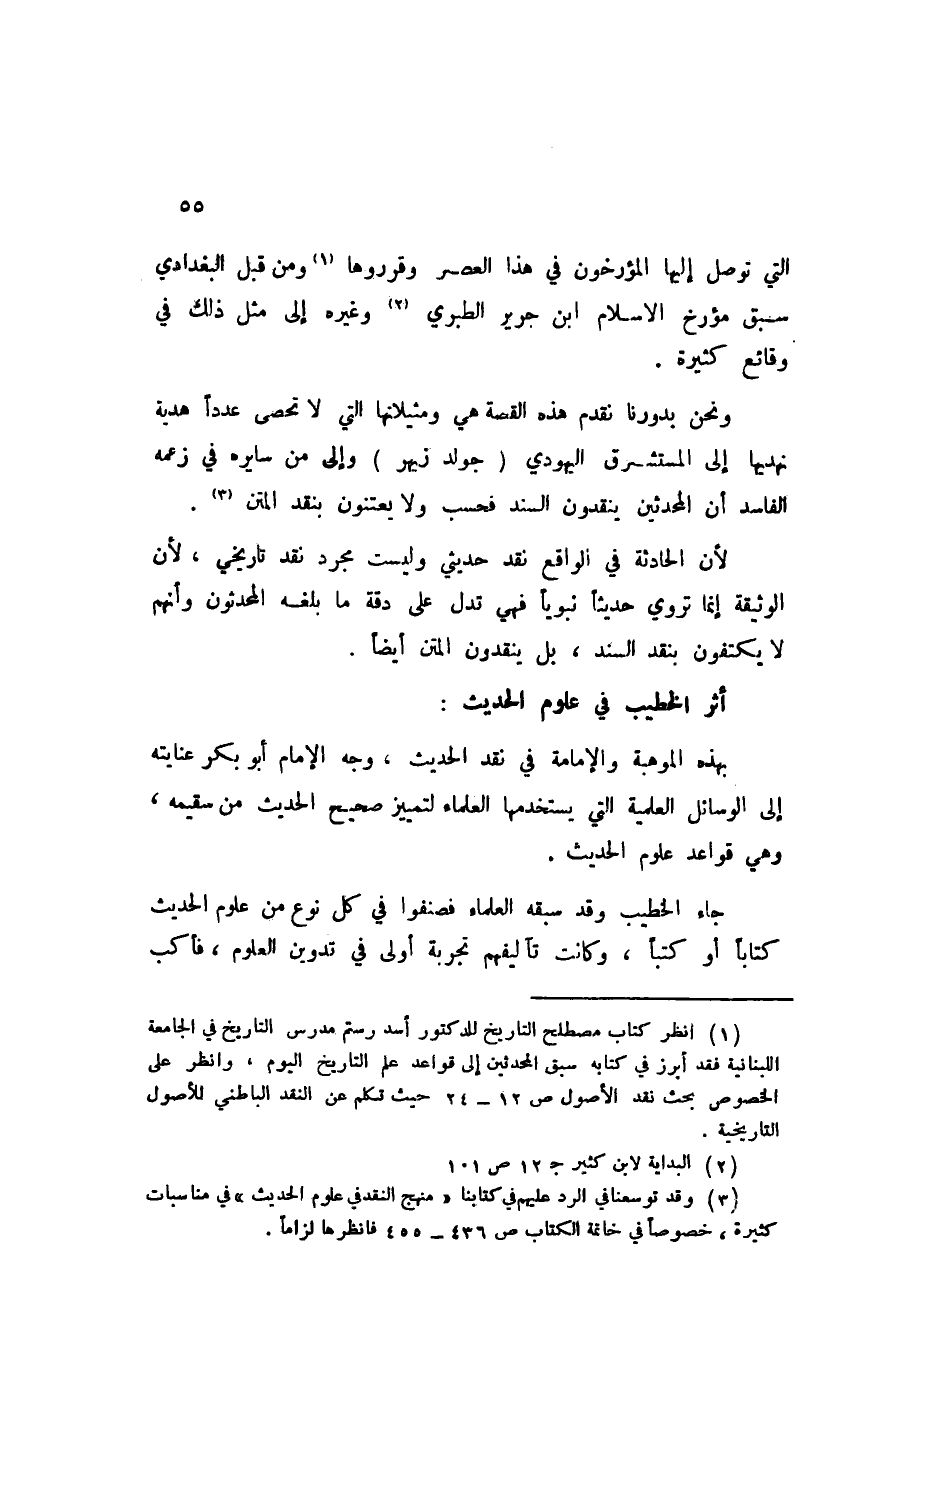 ٥٥
التي توصل إليها المؤرخون في هذا العصر وقرروها (١) ومن قبل البغدادي
سبق مؤرخ الاسلام ابن جرير الطبري (٢) وغيره إلى مثل ذلك في
وقائع كثيرة .
ونحن بدورنا نقدم هذه القصة هي ومثيلاتها التي لا تحصى عدداً هدية
نهديها إلى المستشرق اليهودي ( جولد زيهر ) وإلى من سايره في زعمه
الفاسد أن المحدثين ينقدون السند فحسب ولا يعتنون بنقد المتن (٣) .
لأن الحادثة في الواقع نقد حديثي وليست مجرد نقد تاريخي ، لأن
الوثيقة إنما تروي حديثاً نبوياً فهي تدل على دقة ما بلغه المحدثون وأنهم
لا يكتفون بنقد السند ، بل ينقدون المتن أيضاً .
أثر الخطيب في علوم الحديث :
بهذه الموهبة والإمامة في نقد الحديث ، وجه الإمام أبو بكر عنايته
إلى الوسائل العلمية التي يستخدمها العلماء لتمييز صحيح الحديث من سقيمه ،
وهي قواعد علوم الحديث .
جاء الخطيب وقد سبقه العلماء فصنفوا في كل نوع من علوم الحديث
كتاباً أو كتباً ، وكانت تآليفهم تجربة أولى في تدوين العلوم ، فأكب
(١) انظر كتاب مصطلح التاريخ للدكتور أسد رستم مدرس التاريخ في الجامعة
اللبنانية فقد أبرز في كتابه سبق المحدثين إلى قواعد علم التاريخ اليوم ، وانظر على
الخصوص بحث نقد الأصول ص ١٢ – ٢٤ حيث تكلم عن النقد الباطني للأصول
التاريخية .
(٢) البداية لابن كثير ج ١٢ ص ١٠١
(٣) وقد توسعنا في الرد عليهم في كتابنا « منهج النقد في علوم الحديث » في مناسبات
كثيرة ، خصوصاً في خاتمة الكتاب ص ٤٣٦ – ٤٥٥ فانظرها لزاماً .